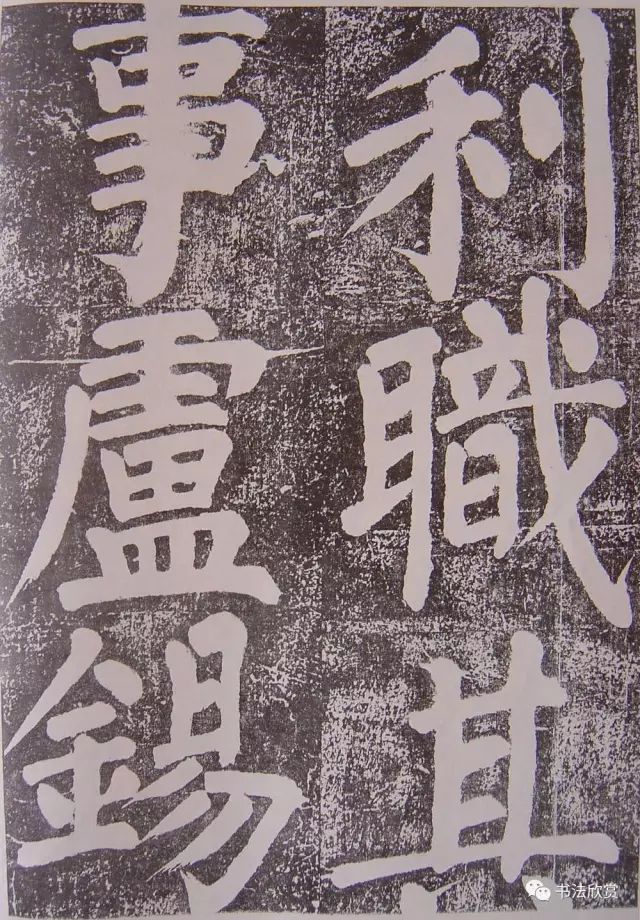 利職其
事盧錫
书法欣赏